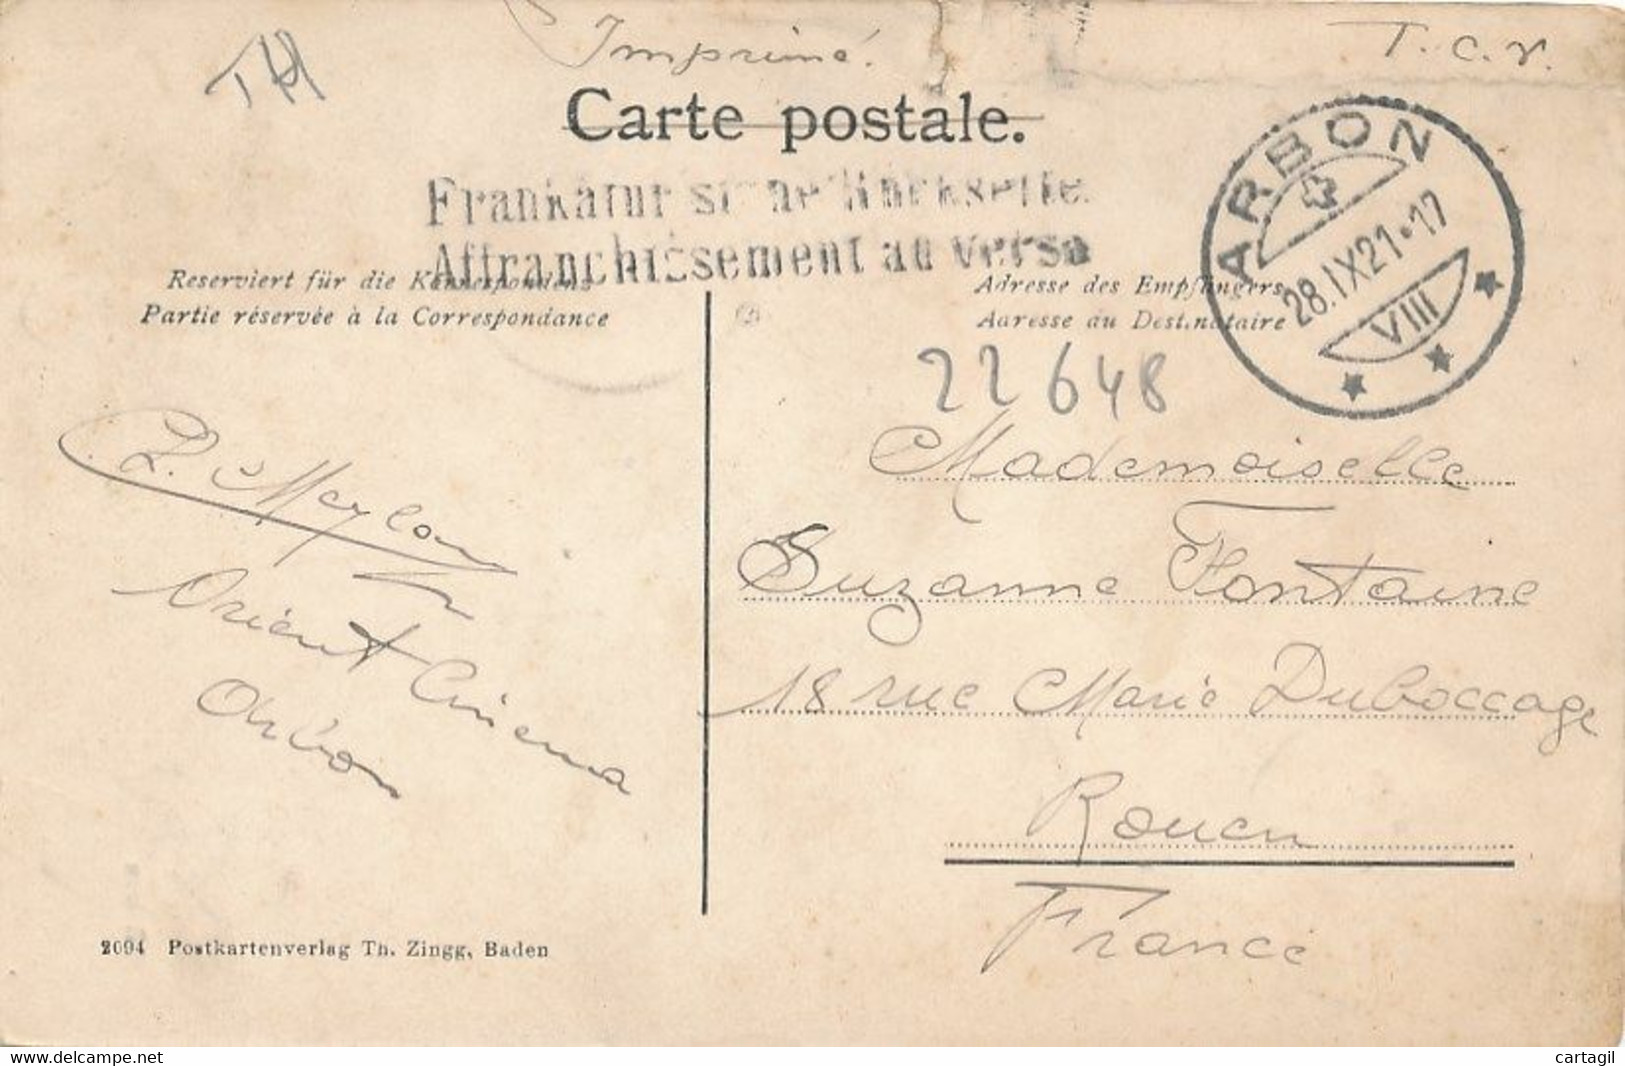 Imprimé.
T.C.V.
TH
Carte postale.
ARBON
28.IX21·17
VIII
Frankatur siehe Rückseite.
Affranchissement au verso
Reserviert für die Korrespondenz
Partie réservée à la Correspondance
Adresse des Empfängers
Adresse du Destinataire
22648
Mademoiselle
Suzanne Fontaine
18 rue Marie Duboccage
Rouen
France
L. Meylan
Orient Cinema
Arbon
2094 Postkartenverlag Th. Zingg, Baden
www.delcampe.net
cartagil